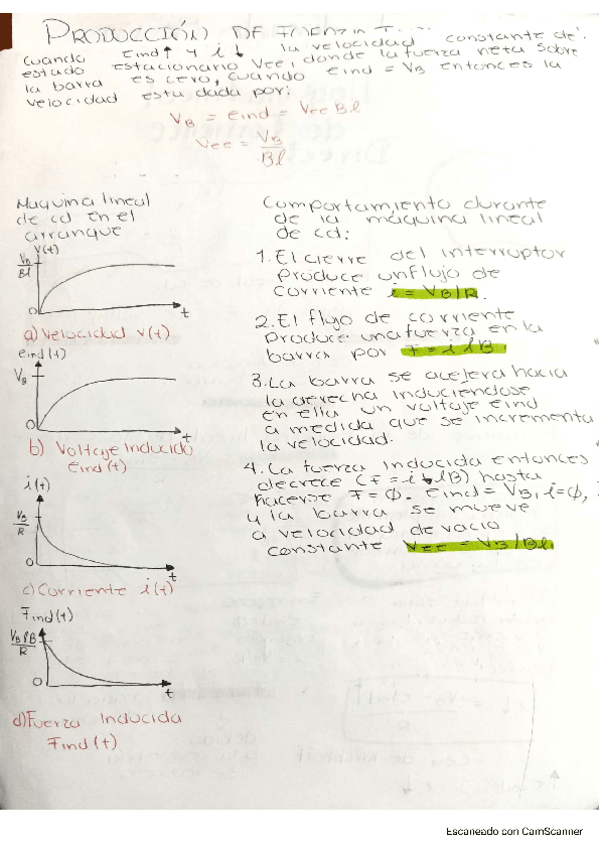 PRODUCCIÓN DE
Cuando eind↑ y i↓ la velocidad constante de
estado estacionario Vee, donde la fuerza neta sobre
la barra es cero, cuando eind = VB entonces la
velocidad esta dada por:
VB = eind = Vee Bl
Vee = VB/Bl
Maquina lineal
de cd en el
arranque
v(t)
VB/Bl
0
t
a) Velocidad v(t)
eind(t)
VB
0
t
b) Voltaje Inducido
eind(t)
i(t)
VB/R
0
t
c) Corriente i(t)
Find(t)
VBlB/R
0
t
d) Fuerza Inducida
Find(t)
Comportamiento durante
de la máquina lineal
de cd:
1. El cierre del interruptor
produce un flujo de
corriente i = VB/R.
2. El flujo de corriente
produce una fuerza en la
barra por F = ilB.
3. La barra se acelera hacia
la derecha induciendose
en ella un voltaje eind
a medida que se incrementa
la velocidad.
4. La fuerza inducida entonces
decrece (F = i↓lB) hasta
hacerse F = Ø. eind = VB, i = Ø,
y la barra se mueve
a velocidad de vacio
constante Vee = VB/Bl
Escaneado con CamScanner